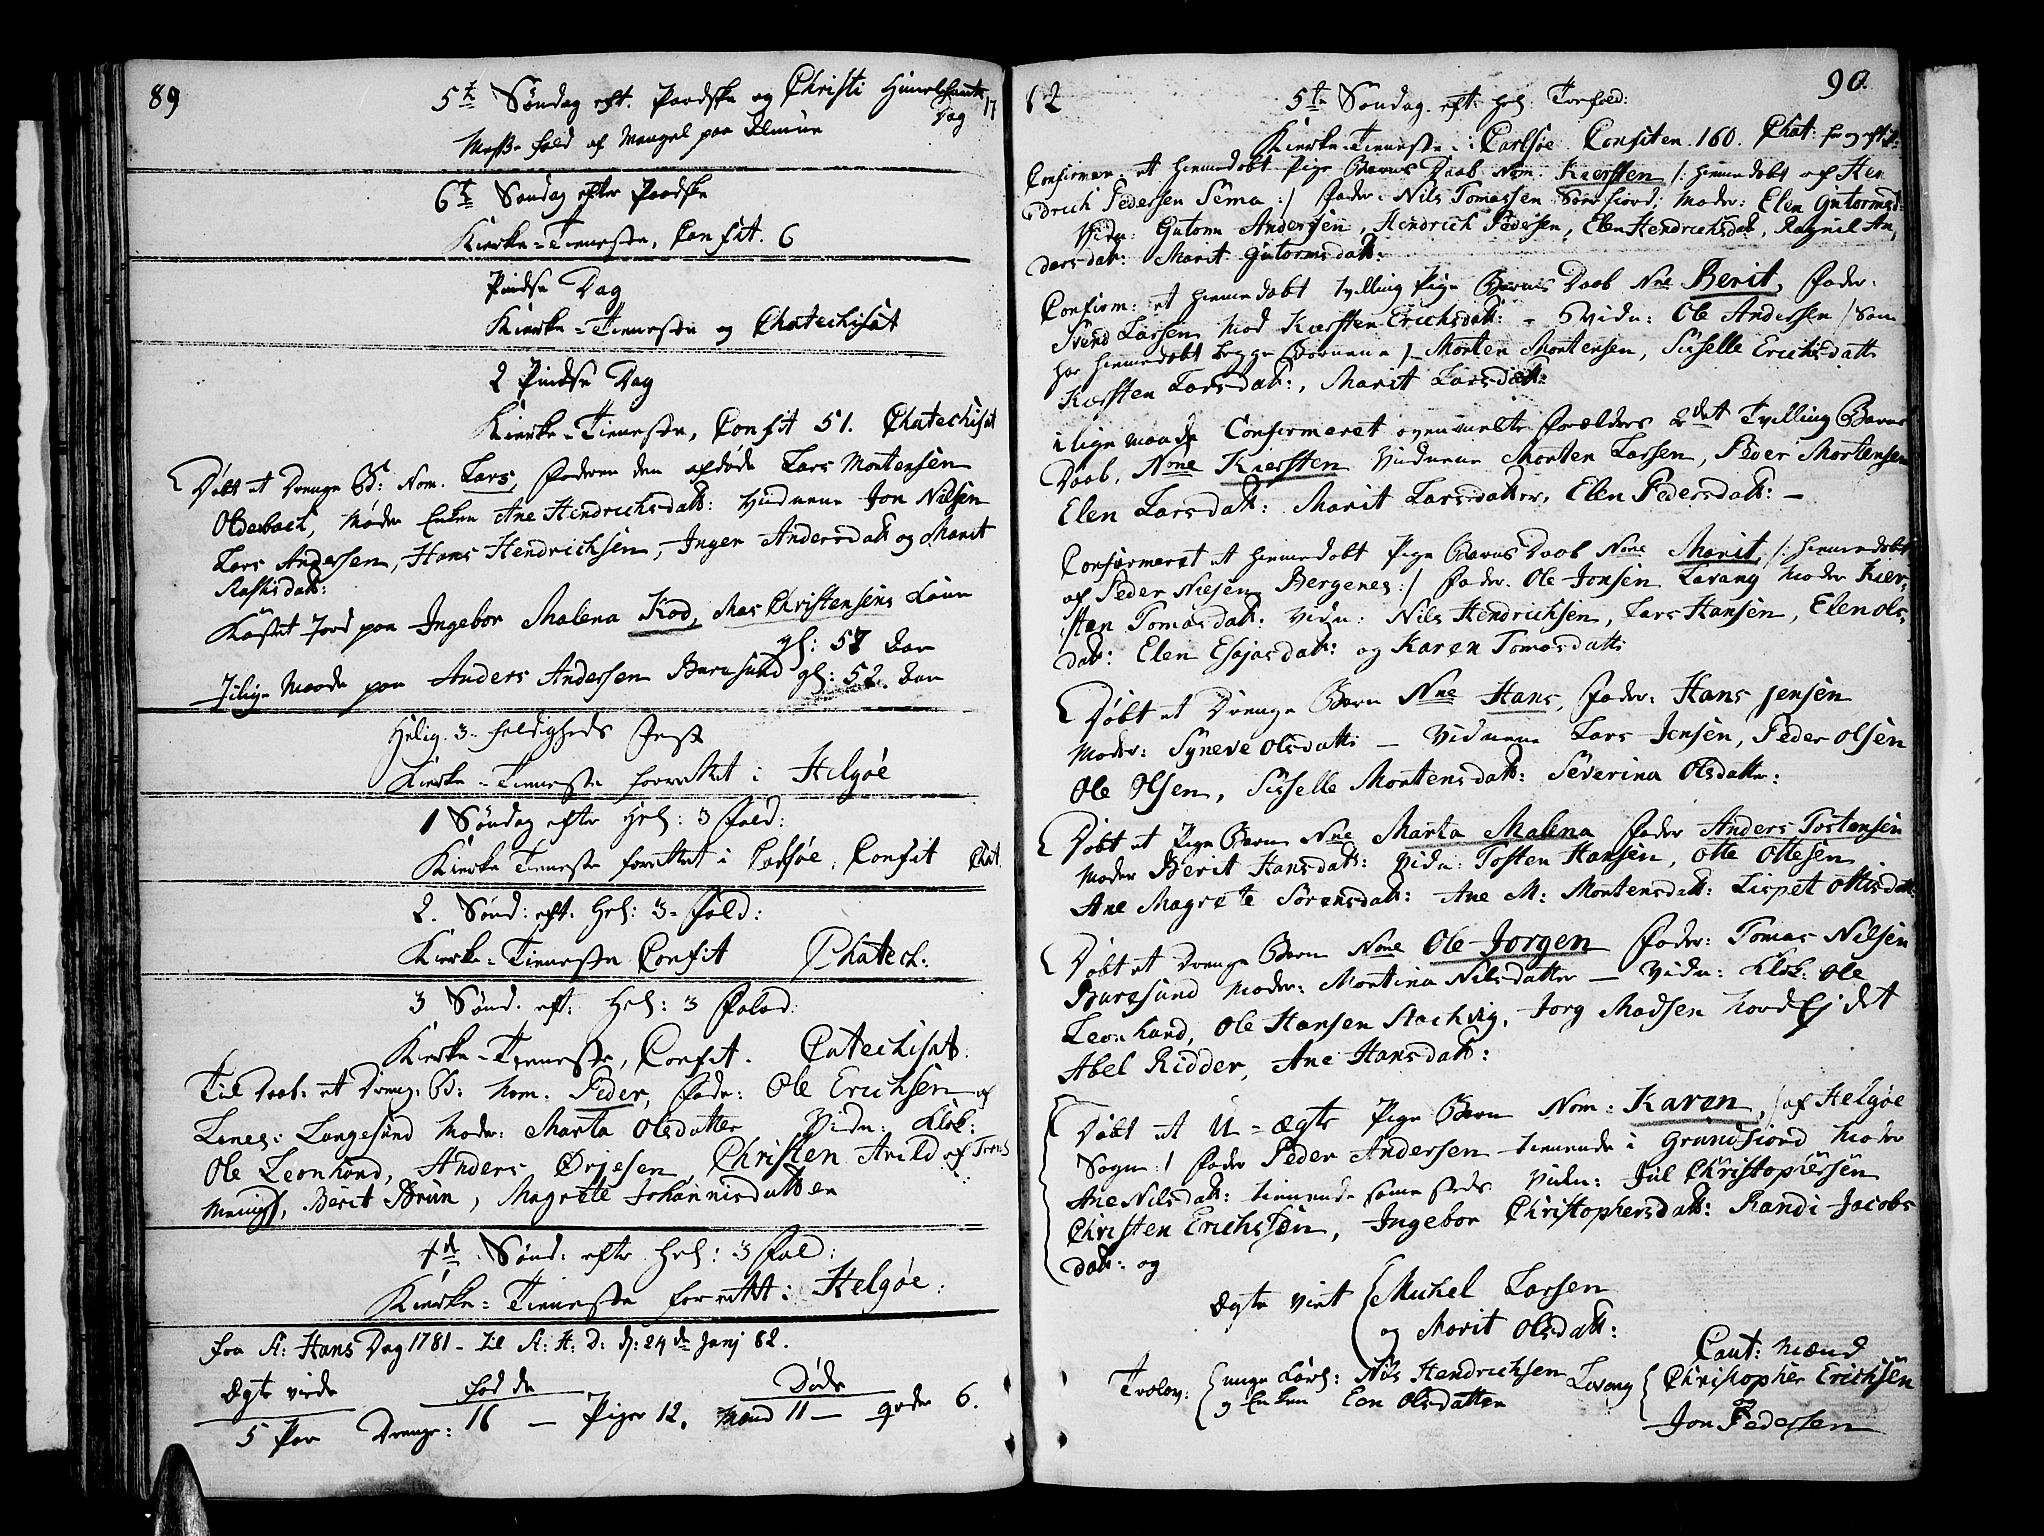 89
5te Søndag eft. Paaske og Christi Himelfarts Dag 17
Mess-fald af Mangel paa Almue
6te Søndag efter Paaske
Kierke-Tieneste, Confit. 6
Pindse Dag
Kierke-Tieneste og Chatechisat
2 Pindse Dag
Kierke-Tieneste, Confit 51. Chatechisat
Døbt et Drenge Bd: Nom. Lars, Faderen den afdøde Lars Mortensen
Olderbach, Moder Enken Ane Hendrichsdatt: Vidnene Jon Nilsen
Lars Andersen, Hans Hendrichsen, Inger Andersdatt og Marit
Rasksdatt:
Kastet Jord paa Ingebor Malena Kod, Mas Christensens Kone
gl: 57 Aar
Jilige Maade paa Anders Andersen Buresund gl: 52. Aar
Helig. 3-foldigheds Fest
Kierke-Tieneste forrettet i Helgøe
1 Søndag efter Hel: 3 Fold:
Kierke Tieneste forrettet i Carlsøe, Confit Chat.
2. Sønd: eft. Hel: 3-Fold:
Kierke-Tieneste Confit Chatech:
3 Sønd. eft: Hel: 3 Folod:
Kierke-Tieneste, Confit. Catechisat:
Til Daab: et Dreng: Bd: Nom. Peder, Fader: Ole Erichsen af
Lenes: Langesund Moder: Marta Olsdatter Vidn: Klok:
Ole Leonhard, Anders Ørjesen, Christen Arild af Troms
Menigh, Berit Brun, Magrete Johannisdatter
4de Sønd: efter Hel: 3 Fol:
Kierke-Tieneste forrettet i Helgøe:
fra St: Hans Dag 1781 - til St: H: D: d: 24de Junj 82.
Ægte viede fødde Døde
5 Par Drenge: 16 — Piger 12. Mænd 11 — qvder 6.
62 90.
5te Søndag eft: Hel: Trefold:
Kierke-Tieneste i Carlsøe Confiten. 160. Chat: før og eft
Confirmer: et hiemedøbt Pige Barns Daab Nom. Kiersten /: hiemedøbt af Hen
drich Pedersen Sema :/ Fader: Nils Tomassen Sørefiord; Moder: Elen Gutormsd:
Vidn: Gutorm Andersen, Hendrich Pedersen, Elen Hendrichsdat, Ragnil An,
dersdatt: Marit Gutormsdatt:
Confirm: et hiemedøbt tvilling Pige Barns Daab Nne Berit, Fader:
Svend Larsen Mod Kiersten Erichsdatt: - Vidn: Ole Andersen / som
har hiemedøbt begge Børnene / Morten Mortensen, Sisselle Erichsdatt
Kirsten Larsdatt:, Marit Larsdatt:
i lige maade Confirmeret ovenmelte Forælders 2det Tvilling Barns
Daab, Nne Kiersten Vidnene Morten Larsen, Peder Mortensen
Elen Larsdatt: Marit Larsdatter, Elen Pedersdatt: —
Confirmeret et hiemedøbt Pige Barns Daab Nne Marit /: hiemedøbt
af Peder Niesen Bergenes :/ Fader: Ole Jonsen Levang Moder Kier:
sten Tomasdatt: Vidn: Nils Hendrichsen, Lars Hansen, Elen Ols
datt: Elen Esajasdatt: og Karen Tomasdatt
Døbt et Drenge Barn Nne Hans, Fader: Hans Jensen
Moder: Syneve Olsdatt: — Vidnene Lars Jensen, Peder Olsen
Ole Olsen, Sisselle Mortensdatt: Severina Olsdatter:
Døbt et Pige Barn Nne Marta Malena Fader Anders Tostensen
Moder Berit Hansdatt: Vidn: Tosten Hansen, Otte Ottesen
Ane Magrete Sørensdatt: Ane M: Mortensdatt: Lispet Ottisdatt
Døbt et Drenge Barn Nne Ole Jorgen Fader: Tomas Nilsen
Buresund Moder: Martina Nilsdatter — Vidn: Klok: Ole
Leonhard, Ole Hansen Stachvig, Jorg Madsen hørdej det
Abel Ridder, Ane Hansdatt:
Døbt et U-ægte Pige Barn Nom: Karen, /: af Helgøe
Sogn :/ Fader Peder Andersen tienende i Grundfiord Moder
Ane Nilsdatt: tienende samesteds Vidn: Jul Christophersen
Christen Erichssen, Ingebor Christophersdatt: Randi Jacobs
datt: og
Ægte viet Mickel Larsen
og Marit Olsdatt:
Trolov: unge Karl: Nils Hendrichsen Levang
og Enken Elen Olsdatter
Caut: Mænd
Christopher Erichsen
Jon Pedersen